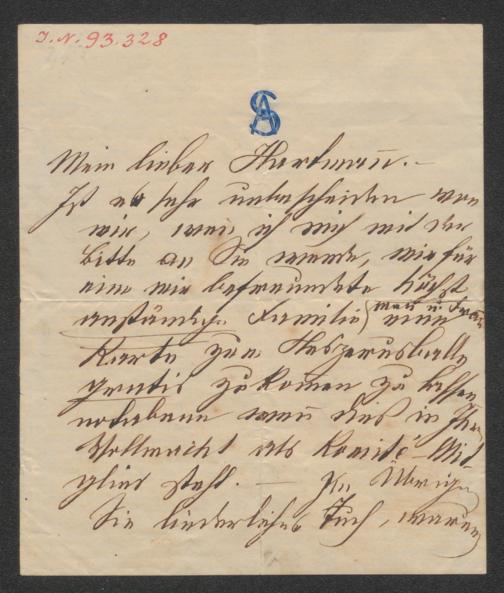 J. N. 93.328
SA
Mein lieber Hartmann. –
Ist es sehr unbescheiden von
mir, wenn ich mich mit der
Bitte an Sie wende, mir für
eine mir befreundete höchst
anständige Familie (Mann u. Frau)
eine
Karte zum Hesperusballe
gratis zukomen zu lassen
notabene wenn dies in Ihrer
Vollmacht als Komité-Mit
glied steht. — Im Übrigen
Sie liederliches Tuch, waren